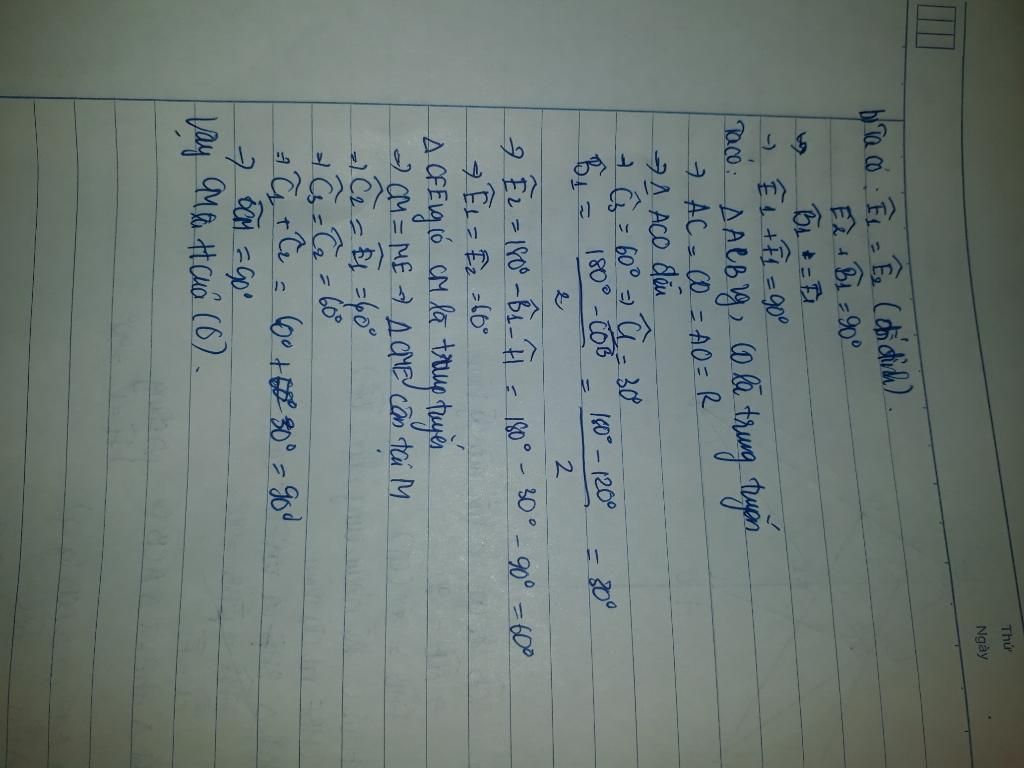 Thứ
Ngày
b) Ta có: Ê1 = Ê2 (đối đỉnh).
Ê2 + B̂1 = 90°
B̂1 = Ê1
→ Ê1 + F̂1 = 90°
Ta có: Δ ACB vg, CO là trung tuyến
→ AC = CO = AO = R
→ Δ ACO đều
→ Ĉ3 = 60° ⇒ Ĉ1 = 30°
B̂1 = (180° - CÔB)/2 = (180° - 120°)/2 = 30°
→ Ê2 = 180° - B̂1 - Ĥ = 180° - 30° - 90° = 60°
→ Ê1 = Ê2 = 60°
Δ CFE vg có CM là trung tuyến
→ CM = ME → Δ CME cân tại M
⇒ Ĉ2 = Ê1 = 60°
→ Ĉ3 = Ĉ2 = 60°
⇒ Ĉ1 + Ĉ2 = 60° + 30° = 90°
→ = 90°
Vậy CM là của (O).